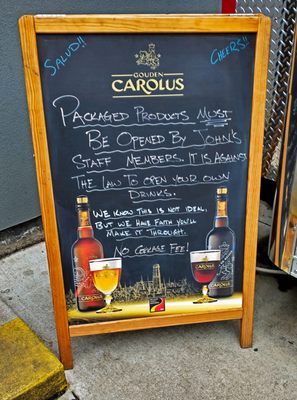 Salud!!
Cheers!!
GOUDEN
CAROLUS
Packaged Products Must
Be Opened By John's
Staff Members. It is Against
The Law To open your own
Drinks.
We know this is not ideal,
But we have faith you'll
Make it through.
No Corkage Fee!